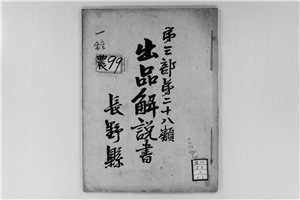 第三部第二十八類
出品解説書
長野縣
一種
農99